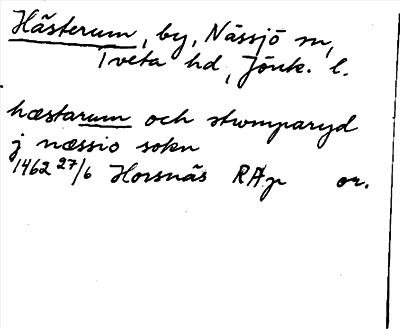 Hästerum, by, Nässjö sn,
Tveta hd, Jönk. l.
hæstarum och stwmparyd
j næssio sokn
1462 27/6 Horsnäs RAp or.